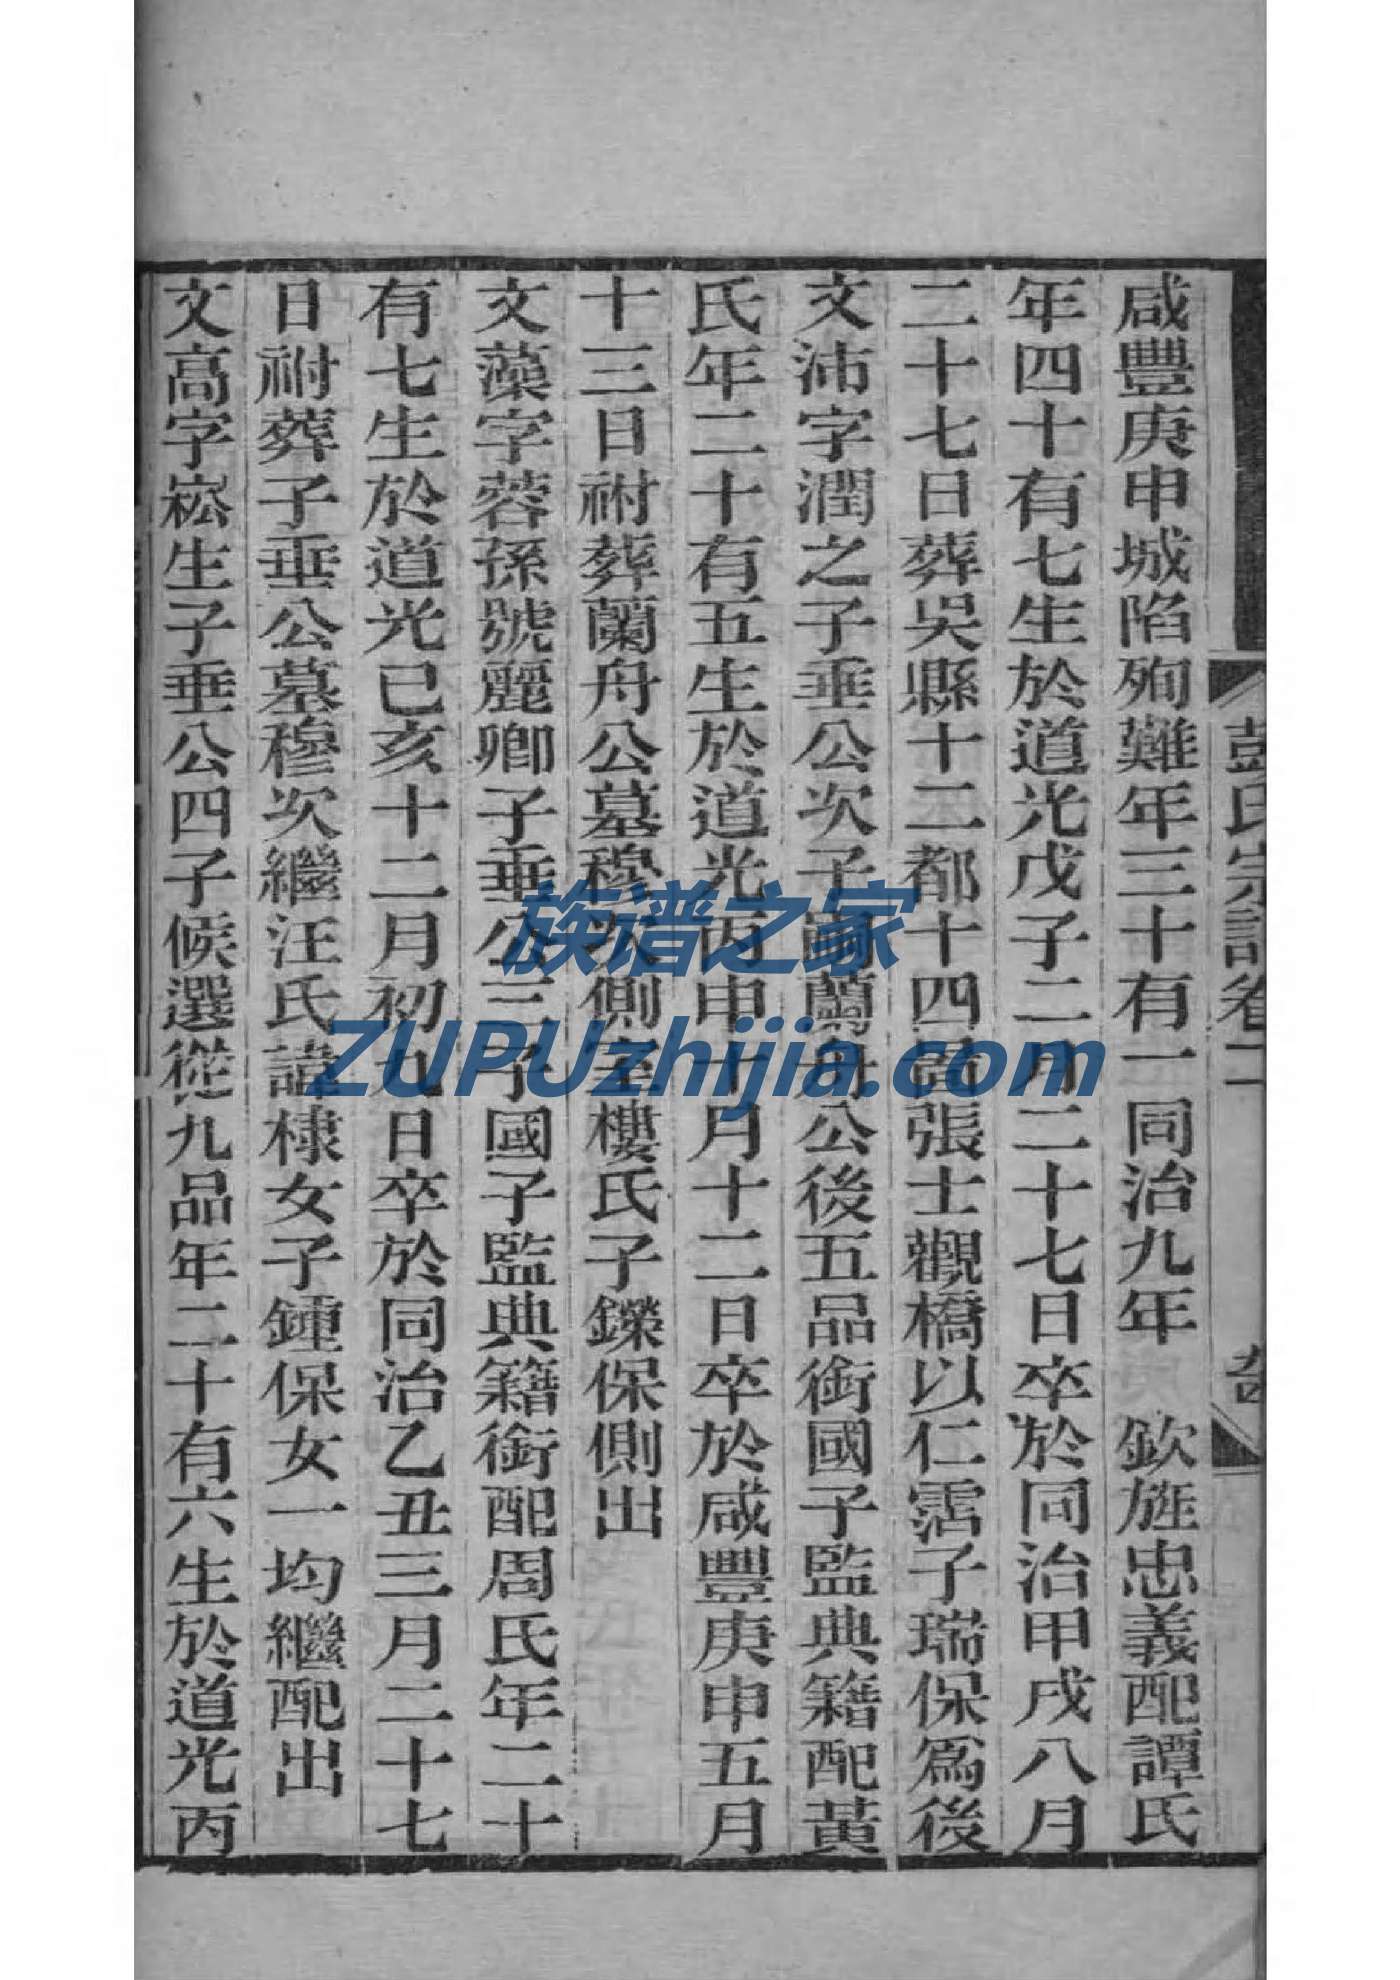 咸豐庚申城陷殉難年三十有一同治九年　欽旌忠義配譚氏
年四十有七生於道光戊子二月二十七日卒於同治甲戌八月
二十七日葬吳縣十二都十四啚張士觀橋以仁霑子瑞保爲後
文沛字潤之子垂公次子嗣蘭舟公後五品銜國子監典籍配黃
氏年二十有五生於道光丙申十月十二日卒於咸豐庚申五月
十三日祔葬蘭舟公墓穆次側室樓氏子鑅保側出
文藻字蓉孫號麗卿子垂公三子國子監典籍銜配周氏年二十
有七生於道光己亥十二月初九日卒於同治乙丑三月二十七
日祔葬子垂公墓穆次繼汪氏諱棣女子鍾保女一均繼配出
文高字崧生子垂公四子候選從九品年二十有六生於道光丙
彭氏宗譜卷二
族谱之家
ZUPUzhijia.com